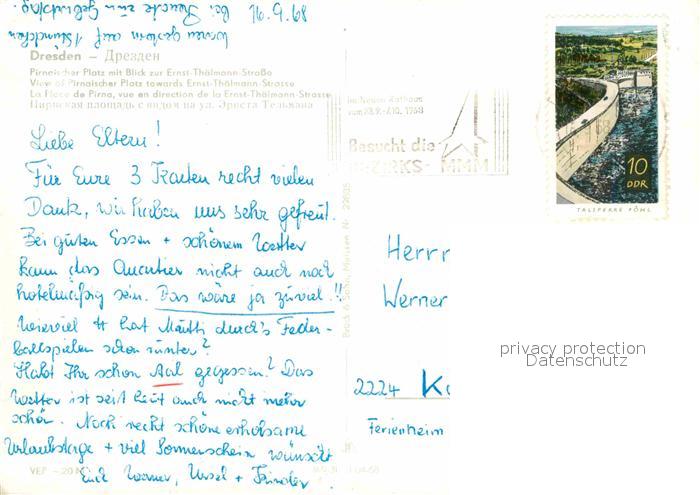 Waren gestern auf 1 Stündchen
bei zum Geburtstag.
16.9.68
Dresden – Дрезден
Pirnaischer Platz mit Blick zur Ernst-Thälmann-Straße
View of Pirnaischer Platz towards Ernst-Thälmann-Strasse
La Place de Pirna, vue en direction de la Ernst-Thälmann-Strasse
Пирнаская площадь с видом на ул. Эрнста Тельмана
Liebe Eltern!
Für Eure 3 Karten recht vielen
Dank, wir haben uns sehr gefreut.
Bei gutem Essen + schönem Wetter
kann das Quartier nicht auch noch
hotelmäßig sein. Das wäre ja zuviel!!
Wieviel hat Mutti durch's Feder-
ballspielen schon runter?
Habt Ihr schon Aal gegessen? Das
Wetter ist seit heut auch nicht mehr
schön. Noch recht schöne erholsame
Urlaubstage + viel Sonnenschein wünscht
Euch Werner, Ursel + Kinder
VEB
im Neuen Rathaus
vom 28.9.-7.10. 1968
Besucht die
BEZIRKS-MMM
10
DDR
TALSPERRE PÖHL
Herrn
Werner
2224 K
Ferienheim
privacy protection
Datenschutz